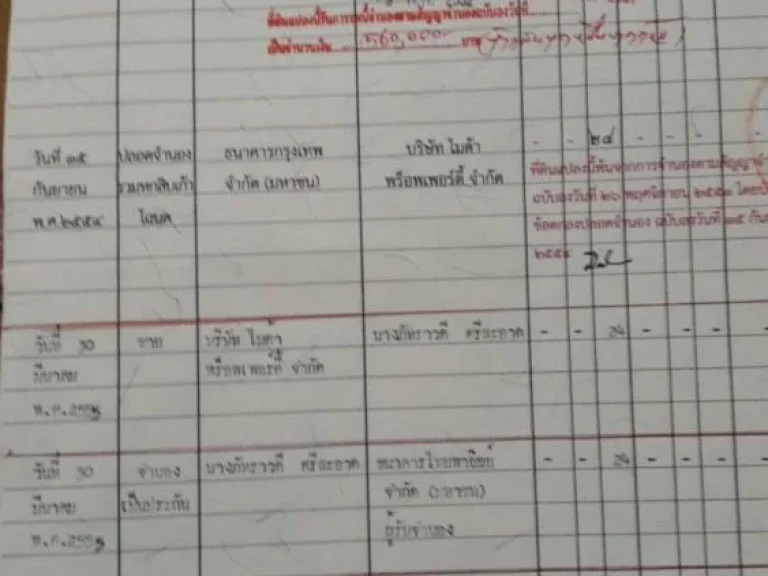 ที่ดินแปลงนี้
เป็นจำนวนเงิน 560,000 บาท
วันที่ ๑๕ ปลอดจำนอง ธนาคารกรุงเทพ บริษัท ไมด้า - - ๒๔ - - - -
กันยายน จำกัด (มหาชน) พร็อพเพอร์ตี้ จำกัด ที่ดินแปลงนี้พ้นจากการจำนองตามสัญญาจำ
พ.ศ.๒๕๕๔ โฉนด ฉบับลงวันที่ ๒๖ พฤศจิกายน
ปลอดจำนอง ฉบับลงวันที่ ๑๕ กัน
วันที่ 30 ขาย บริษัท ไมด้า นางภัทราวดี ศรีสะอาด - - 24 - - - -
มีนาคม พร็อพเพอร์ตี้ จำกัด
พ.ศ.2555
วันที่ 30 จำนอง นางภัทราวดี ศรีสะอาด ธนาคารไทยพาณิชย์ - - 24 - - - -
มีนาคม เป็นประกัน จำกัด (มหาชน)
พ.ศ.2555 ผู้รับจำนอง